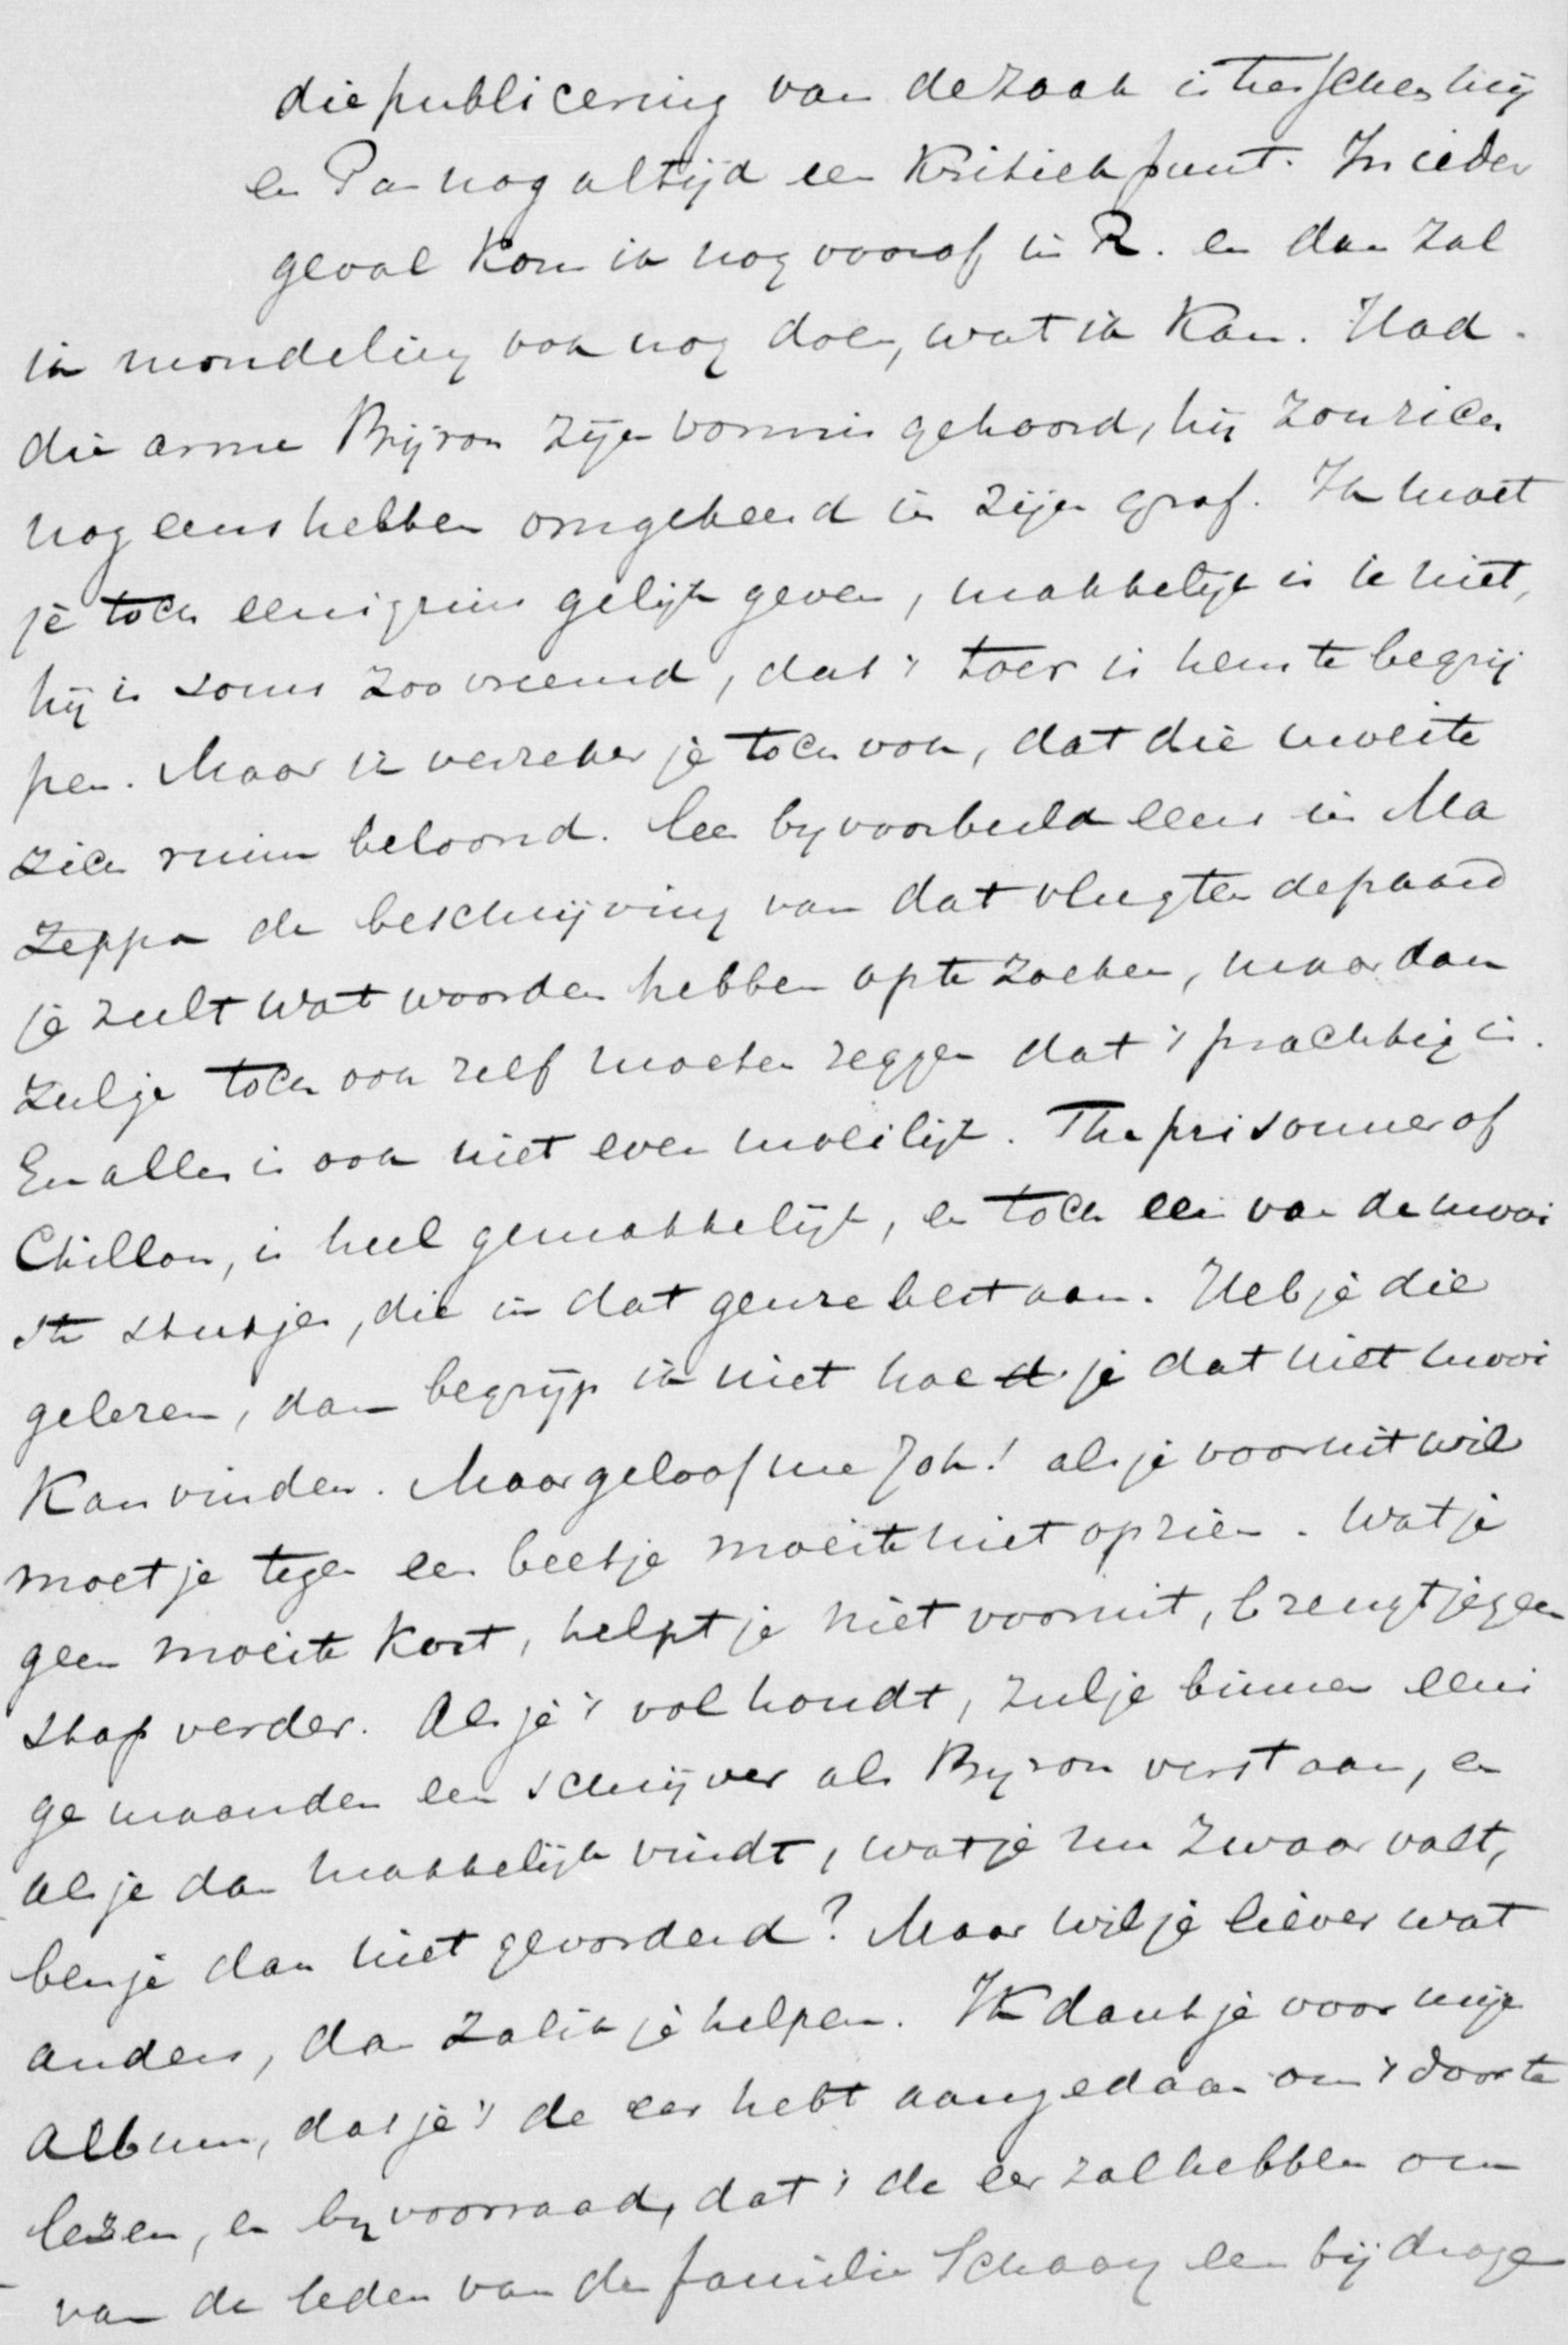 die publiceering van de zaak is tusschen hij
en Pa nog altijd een kritiek punt. In ieder
geval kom ik nog vooraf in R. en dan zal
ik mondeling ook nog doen, wat ik kan. Had
die arme Bijron zijn vonnis gehoord, hij zou zich
nog eens hebben omgekeerd in zijn graf. Ik moet
je toch eenigzins gelijk geven, makkelijk is ie niet,
hij is soms zoo vreemd, dat 't toer is hem te begrij
pen. Maar ik verzeker je toch ook, dat die moeite
zich ruim beloond. Lees byvoorbeeld eens in Ma
zeppa de beschrijving van dat vlugten de paard
je zult wat woorden hebben op te zoeken, maar dan
zul je toch ook zelf moeten zeggen dat 't prachtig is.
En alles is ook niet even moeilijk. The prisonner of
Chillon, is heel gemakkelijk, en toch een van de mooi
ste stukjes, die in dat genre bestaan. Heb je die
gelezen, dan begrijp ik niet hoe d je dat niet mooi
kan vinden. Maar geloof me Joh! als je vooruit wil
moet je tegen een beetje moeite niet opzien. Wat je
geen moeite kost, helpt je niet vooruit, brengt je geen
stap verder. Als je 't vol houdt, zul je binnen eeni
ge maanden een schrijver als Byron verstaan, en
als je dan makkelijk vindt, wat je nu zwaar valt,
ben je dan niet gevorderd? Maar wil je liever wat
anders, dan zal ik je helpen. Ik dank je voor mijn
Album, dat je 't de eer hebt aangedaan om 't door te
lezen, en by voorraad, dat 't de eer zal hebben om
van de leden van de familie Schaay een bijdrage